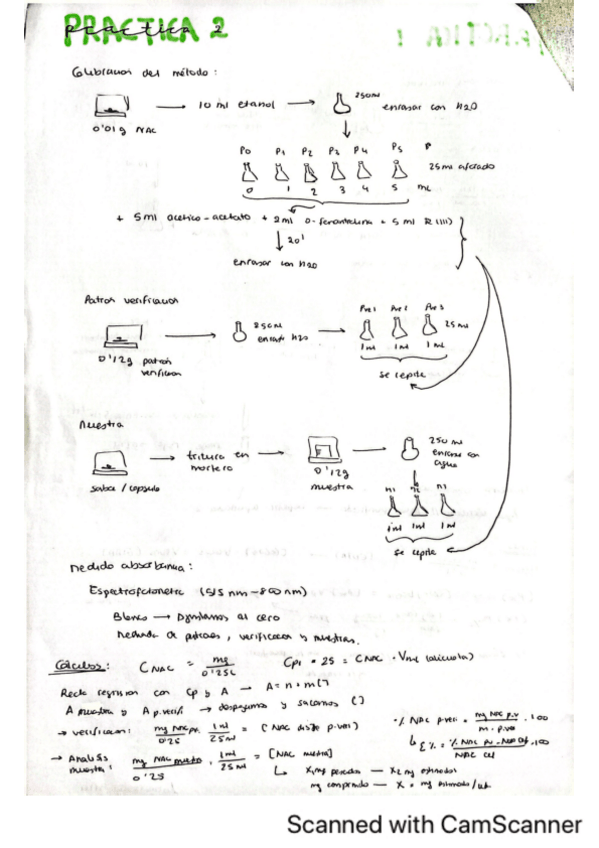 PRACTICA 2
Calibracion del método:
0'01g NAC
10 ml etanol
250ml
enrasar con H2O
P0 P1 P2 P3 P4 P5
25 ml aforado
0 1 2 3 4 5 mL
+ 5 ml acético-acetato + 2 ml o-fenantrolina + 5 ml R (III)
20'
enrasar con H2O
Patron verificacion
0'12g patron verificacion
250ml
enrasar H2O
Pve1 Pve2 Pve3
25 ml
1 ml 1 ml 1 ml
se repite
Muestra
sobre / capsula
tritura en mortero
0'12g muestra
250 ml
enrasar con agua
m1 m1
1ml 1ml 1ml
se repite
Medida absorbancia:
Espectrofotometro (515 nm - 800 nm)
Blanco → Ajustamos al cero
Medida de patrones, verificacion y muestras.
Cálculos: C NAC = mg / 0'25L Cpi · 25 = C NAC · Vml (alicuota)
Recta regresion con Cp y A → A = n + m[ ]
A muestra y A p.verif → despejamos y sacamos [ ]
→ verificacion: mg NAC pv. / 0'25 · 1 ml / 25 ml = [NAC p.ver)
% NAC p.ver = mg NAC p.v / m · p.ver · 100
→ Analisis muestra: mg NAC muestra / 0'25 · 1 ml / 25 ml = [NAC muestra]
X1 mg pesados — X2 mg estimados
mg comprimido — X = mg estimado/ud.
Scanned with CamScanner